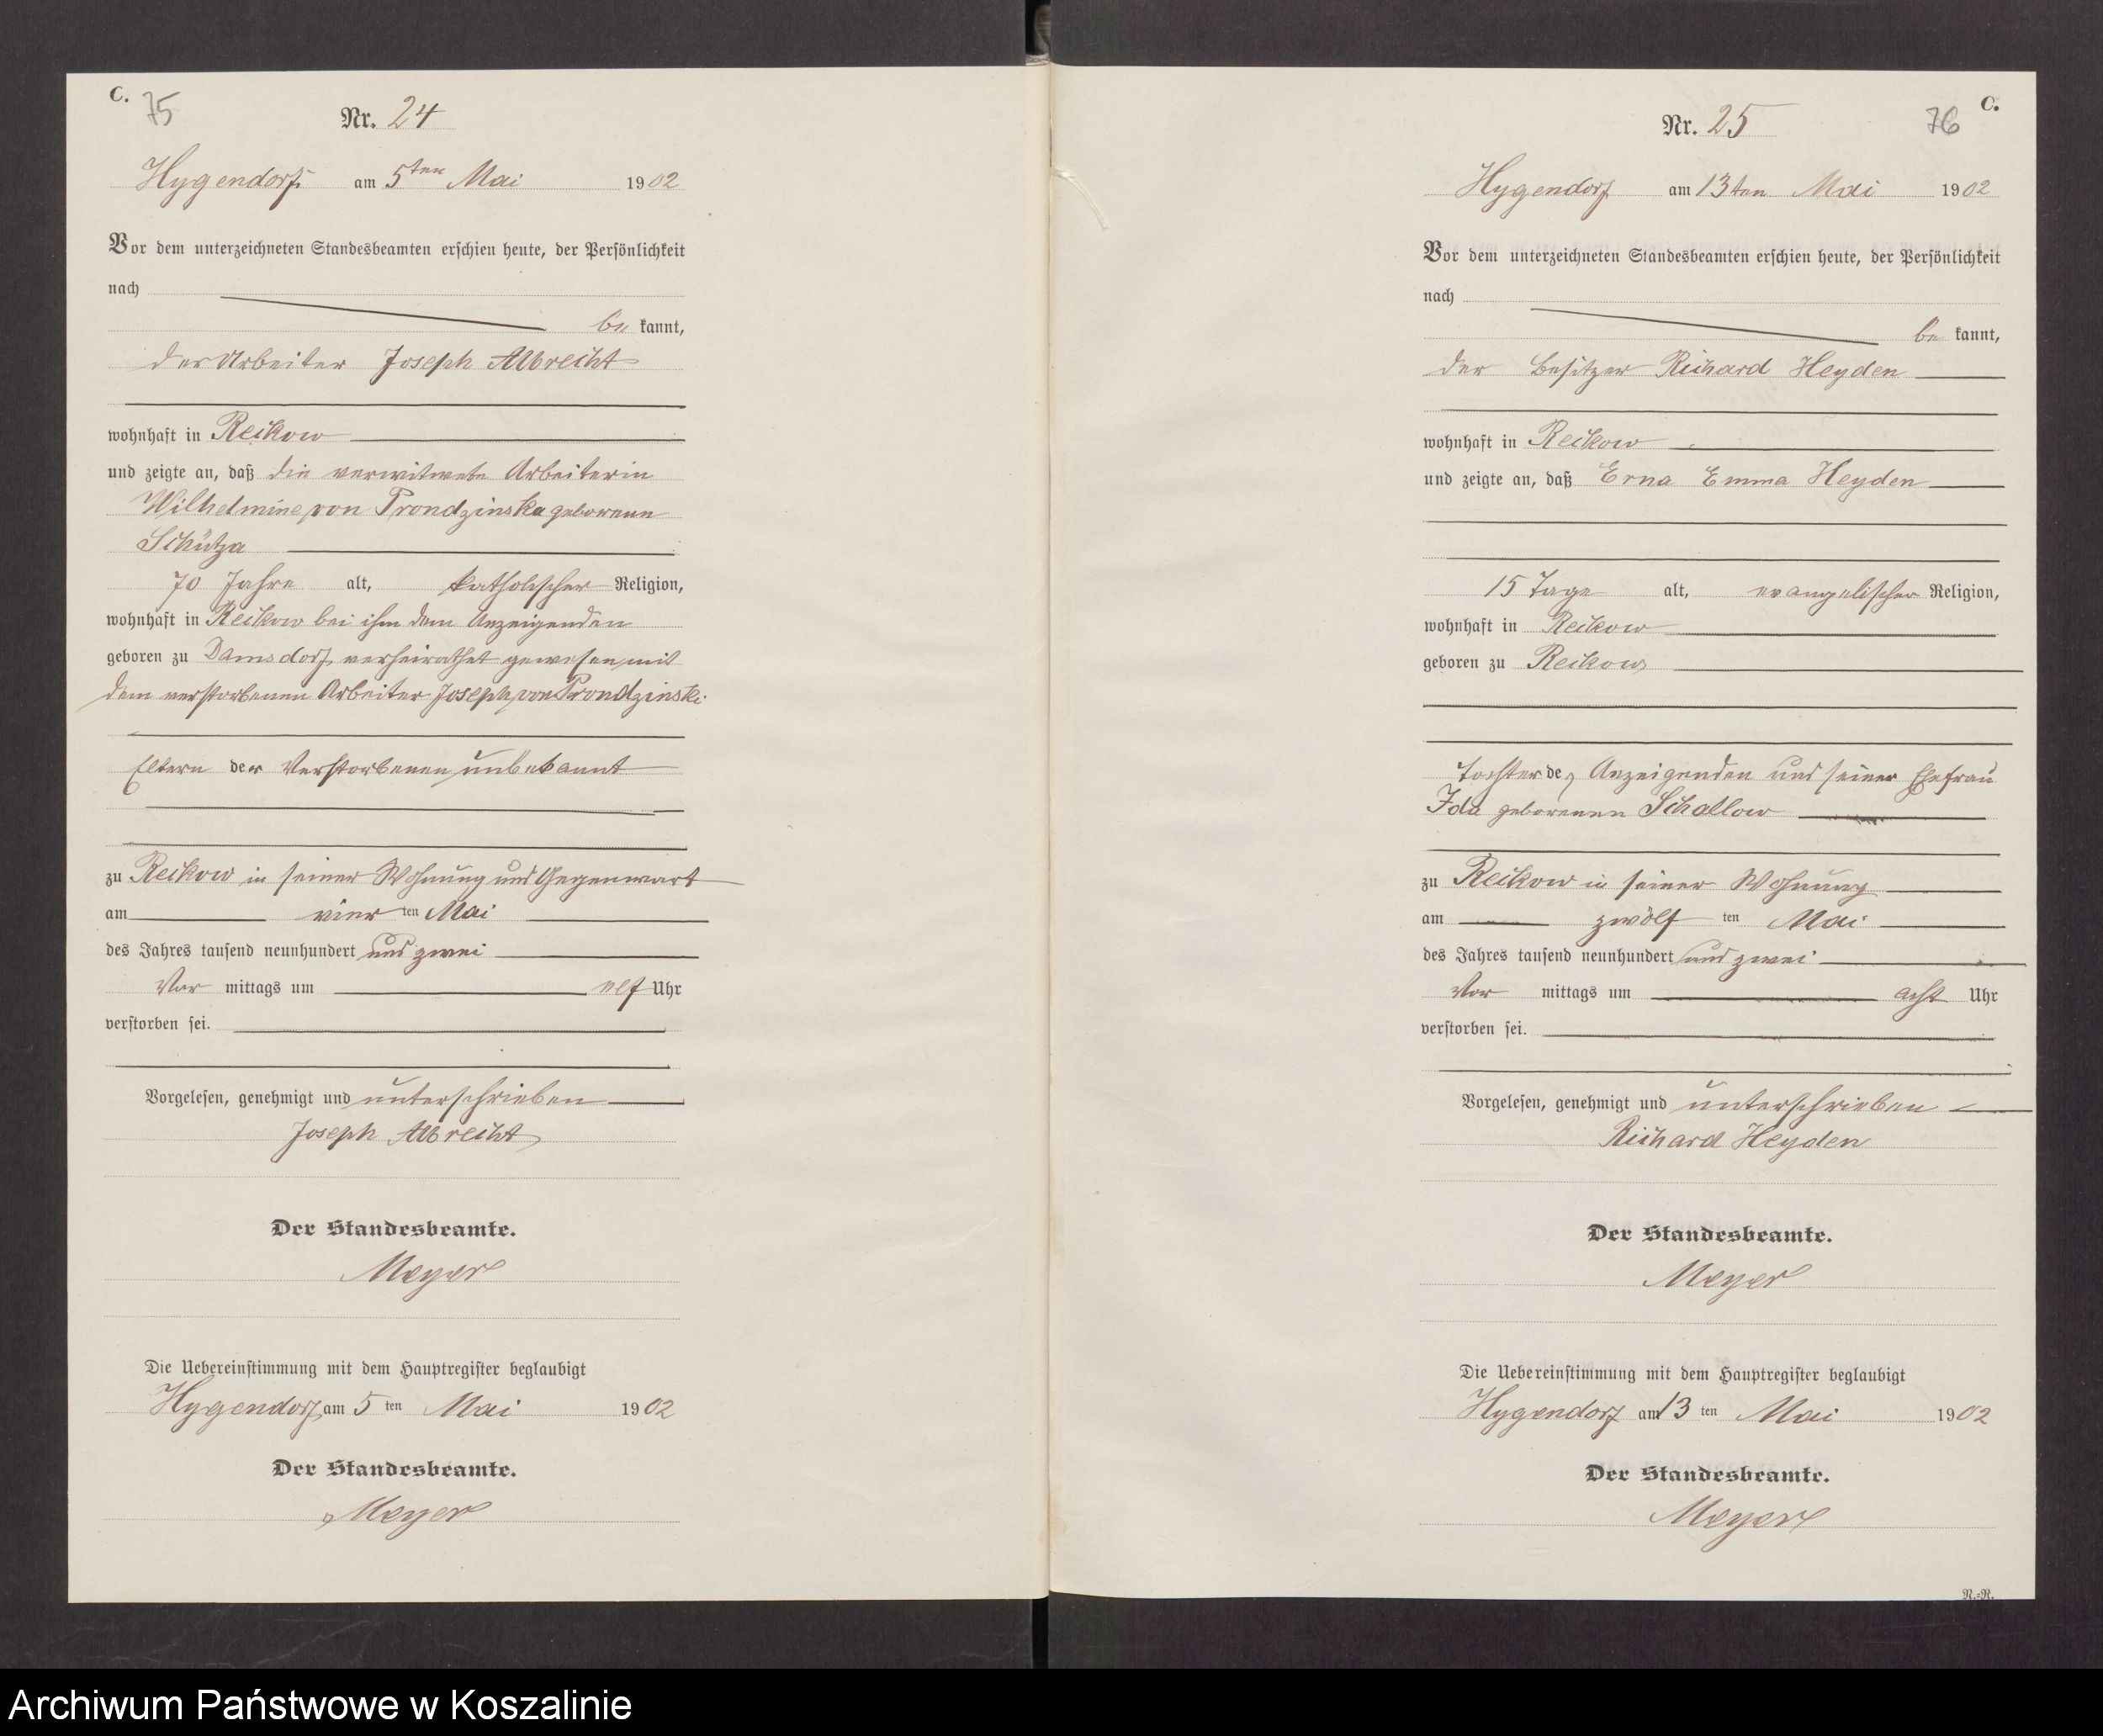 C. 75
Nr. 24
Hygendorf am 5ten Mai 1902
Vor dem unterzeichneten Standesbeamten erschien heute, der Persönlichkeit
nach
be kannt,
der Arbeiter Joseph Albrecht
wohnhaft in Reikow
und zeigte an, daß die verwitwete Arbeiterin
Wilhelmine von Prondzinska geborene
Schütza
70 Jahre alt, katholischer Religion,
wohnhaft in Reikow bei ihm dem Anzeigenden
geboren zu Damsdorf, verheirathet gewesen mit
dem verstorbenen Arbeiter Joseph von Prondzinski
Eltern der Verstorbenen unbekannt
zu Reikow in seiner Wohnung und Gegenwart
am vier ten Mai
des Jahres tausend neunhundert und zwei
Vor mittags um elf Uhr
verstorben sei.
Vorgelesen, genehmigt und unterschrieben
Joseph Albrecht
Der Standesbeamte.
Meyer
Die Uebereinstimmung mit dem Hauptregister beglaubigt
Hygendorf, am 5 ten Mai 1902
Der Standesbeamte.
Meyer
76 C.
Nr. 25
Hygendorf am 13ten Mai 1902
Vor dem unterzeichneten Standesbeamten erschien heute, der Persönlichkeit
nach
be kannt,
der Besitzer Richard Heyden
wohnhaft in Reikow
und zeigte an, daß Erna Emma Heyden
15 Tage alt, evangelischer Religion,
wohnhaft in Reikow
geboren zu Reikow
Tochter des Anzeigenden und seiner Ehefrau
Ida geborenen Schallow
zu Reikow in seiner Wohnung
am zwölf ten Mai
des Jahres tausend neunhundert und zwei
Vor mittags um acht Uhr
verstorben sei.
Vorgelesen, genehmigt und unterschrieben
Richard Heyden
Der Standesbeamte.
Meyer
Die Uebereinstimmung mit dem Hauptregister beglaubigt
Hygendorf am 13 ten Mai 1902
Der Standesbeamte.
Meyer
N.-R.
Archiwum Państwowe w Koszalinie